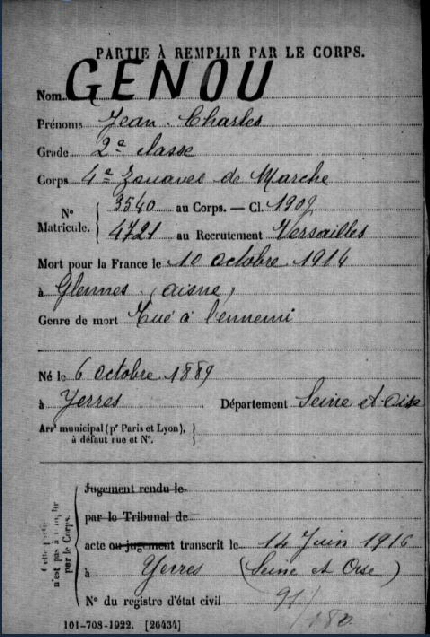 PARTIE À REMPLIR PAR LE CORPS.
Nom GENOU
Prénoms Jean Charles
Grade 2e classe
Corps 4e Zouaves de Marche
N° Matricule. 3540 au Corps. — Cl. 1909
4721 au Recrutement Versailles
Mort pour la France le 10 octobre 1914
à Glennes (aisne)
Genre de mort Tué à l'ennemi
Né le 6 octobre 1889
à Yerres Département Seine et Oise
Arrt municipal (pr Paris et Lyon), à défaut rue et N°.
Jugement rendu le
par le Tribunal de
acte ou jugement transcrit le 14 Juin 1916
à Yerres (Seine et Oise)
N° du registre d'état civil
par le Corps.
101-708-1922. [26434]